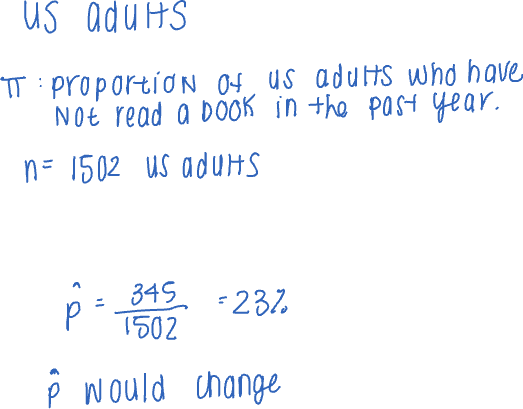 US adults
π : proportion of us adults who have
Not read a book in the past year.
n= 1502 us adults
p̂ = 345/1502 = 23%
p̂ would change